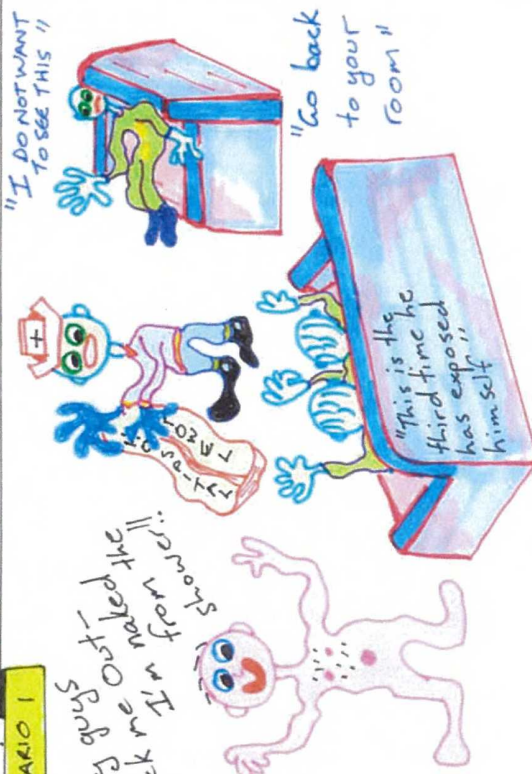 ARIO 1
guys
ck me out-
I'm naked
from the
shower!!
HOSPITAL
TOWEL
"I DO NOT WANT
TO SEE THIS"
"Go back
to your
room"
"This is the
third time he
has exposed
himself"